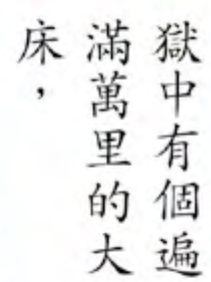 獄中有個遍
滿萬里的大
床，